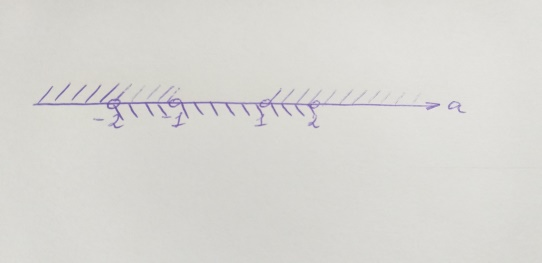 -2 -1 1 2 a